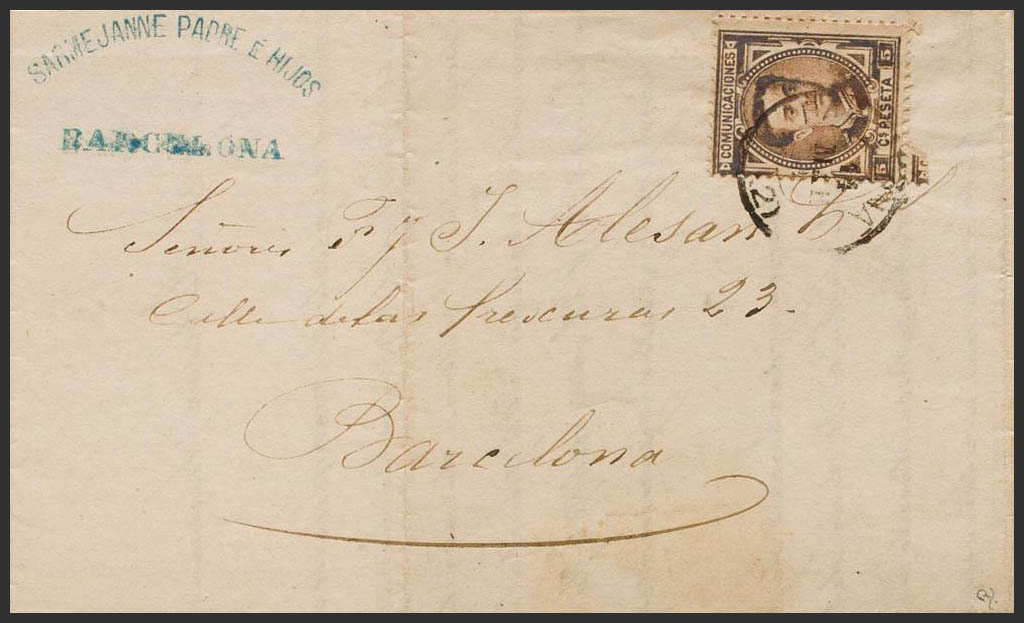 SARMEJANNE PADRE É HIJOS
BARCELONA
COMUNICACIONES
5 Cs PESETA 5
Señores F y J. Alesan
Calle de las frexuras 23.
Barcelona